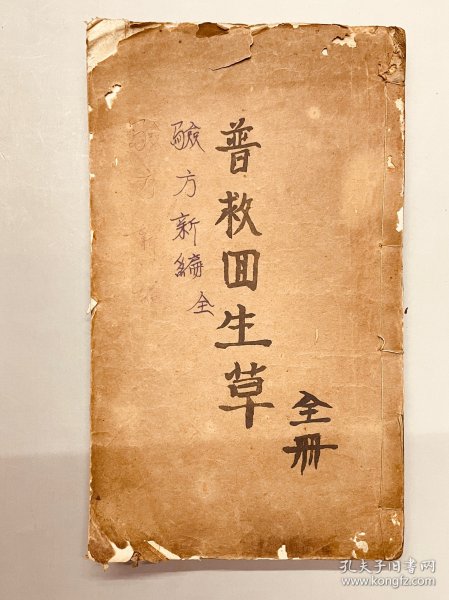 普救回生草
全冊
驗方新編全
驗方新編
孔夫子旧书网
www.kongfz.com